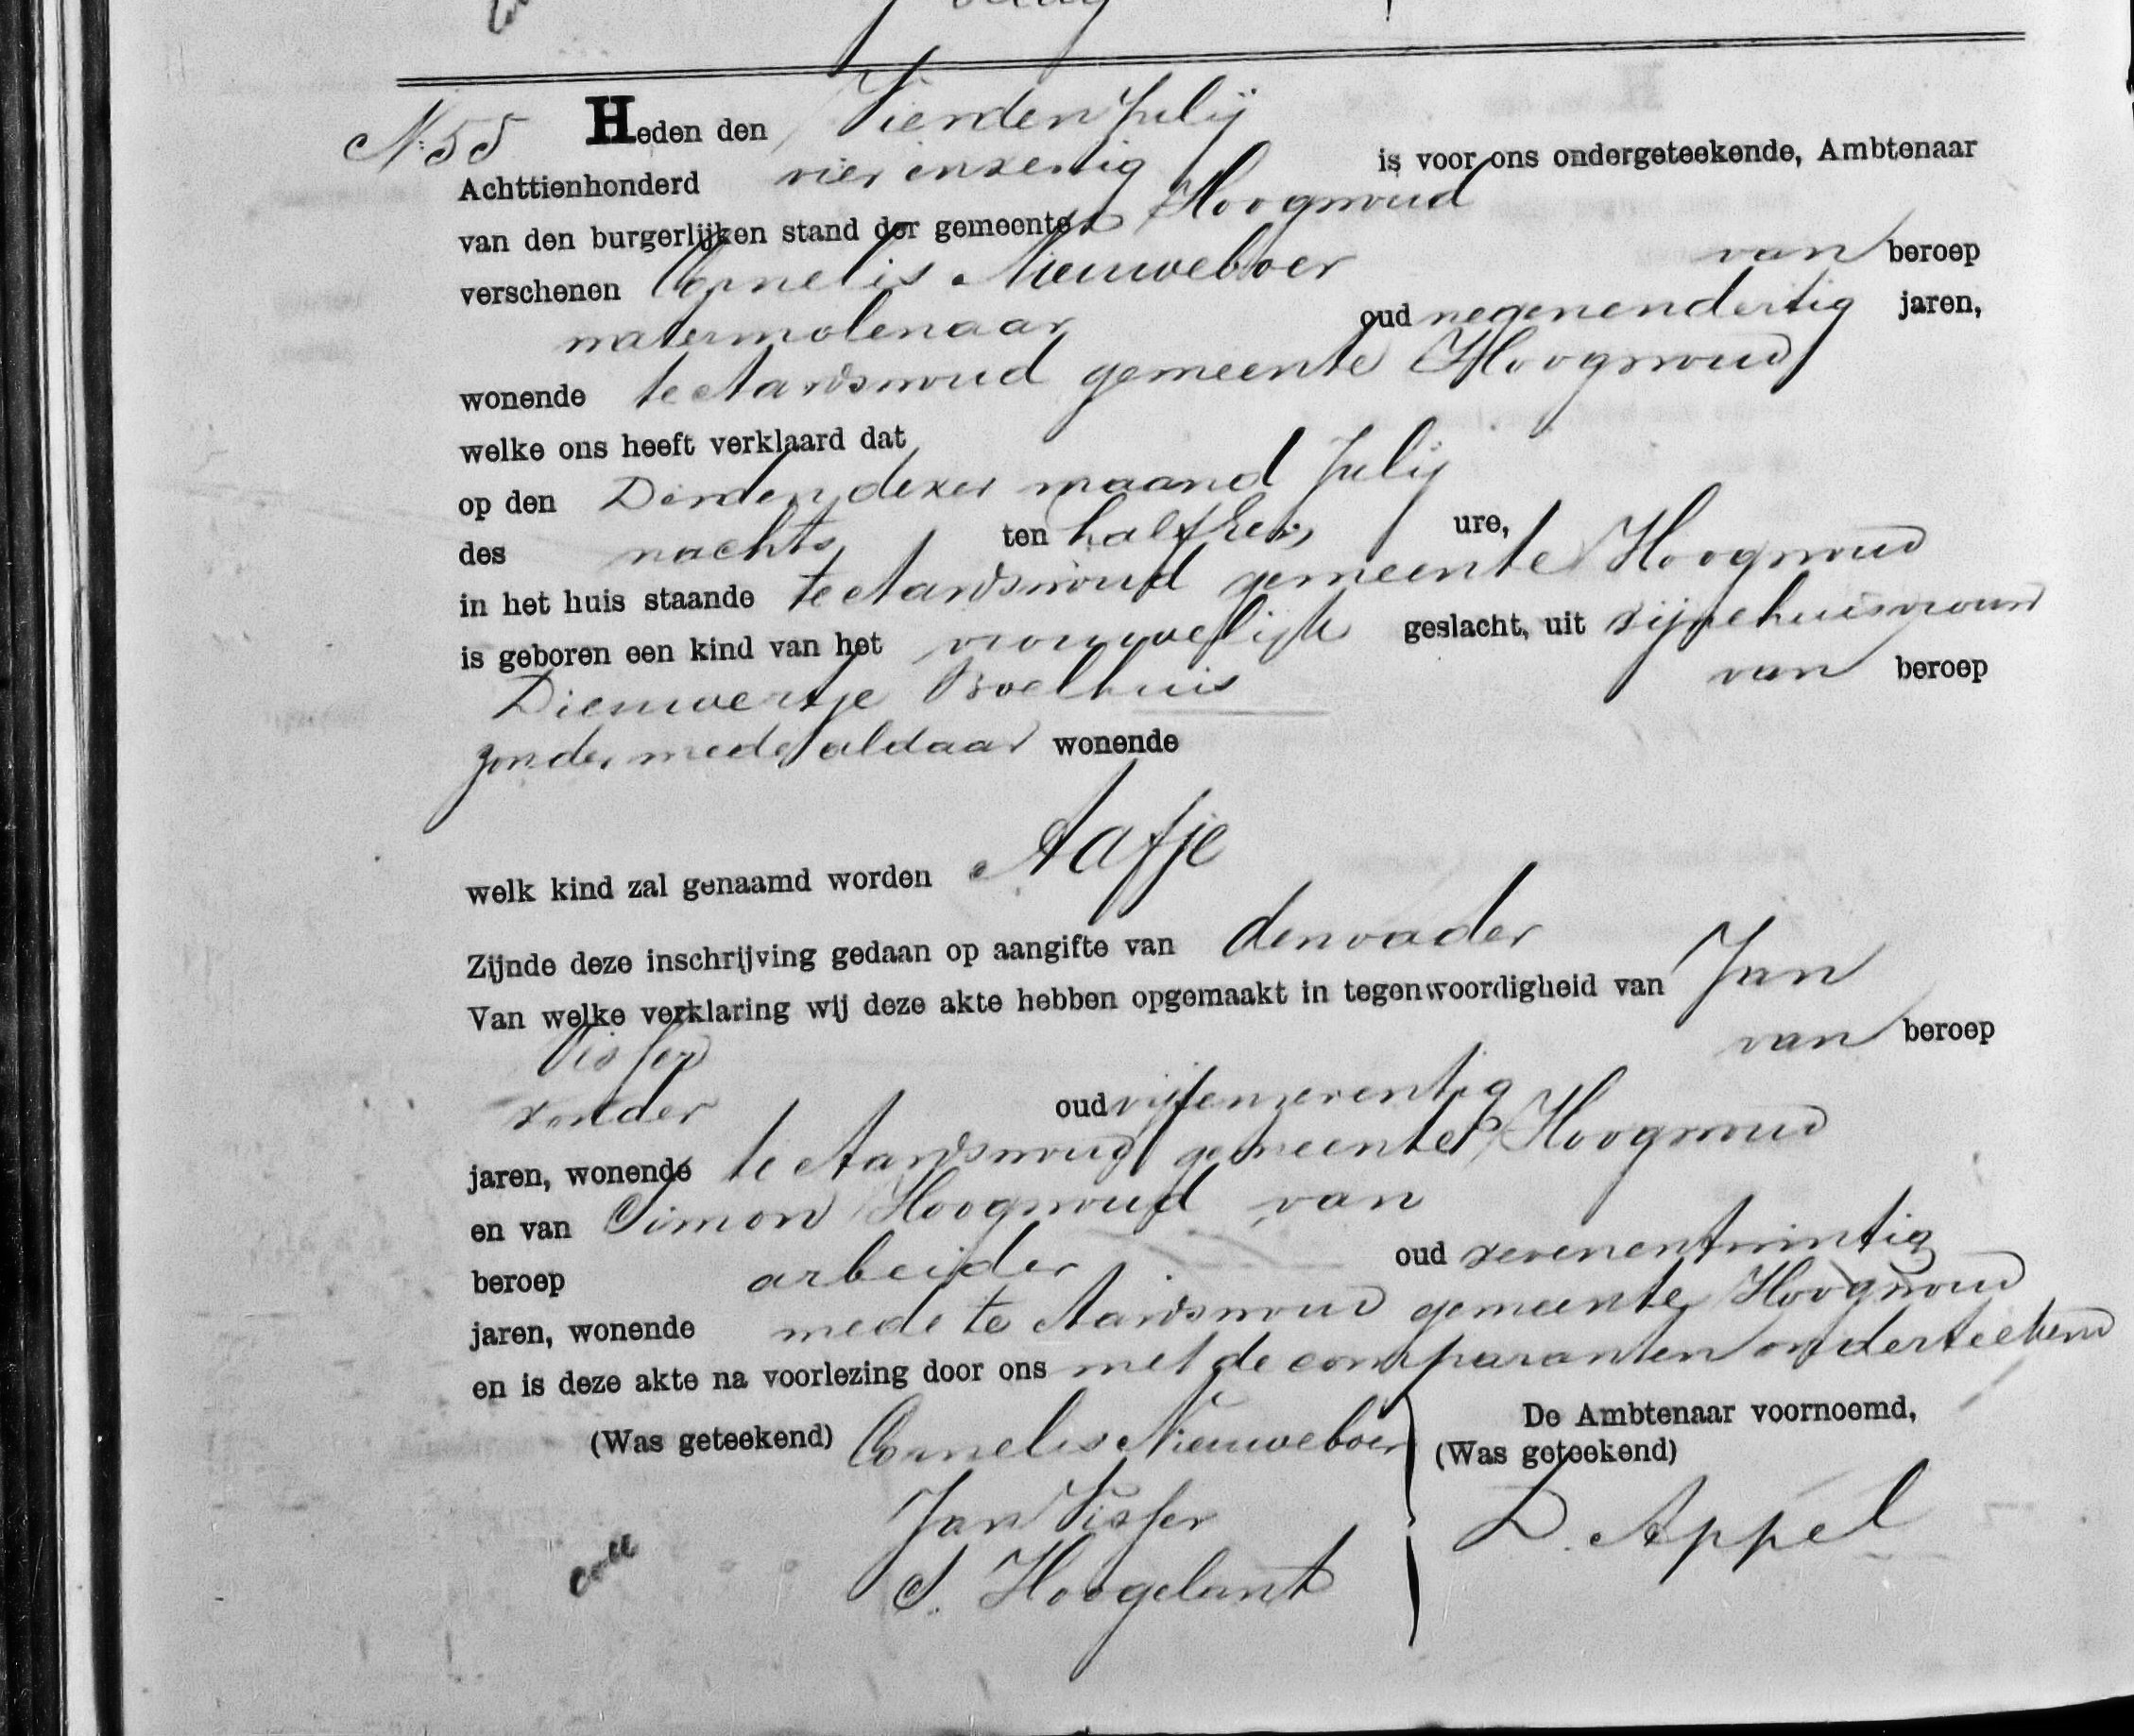 N. 55 Heden den Vierden Julij
Achttienhonderd vier en zestig is voor ons ondergeteekende, Ambtenaar
van den burgerlijken stand der gemeente Hoogwoud
verschenen Cornelis Nieuweboer van beroep
watermolenaar oud negenendertig jaren,
wonende te Aardswoud gemeente Hoogwoud
welke ons heeft verklaard dat
op den Derden dezer maand Julij
des nachts ten half ure,
in het huis staande te Aardswoud gemeente Hoogwoud
is geboren een kind van het vrouwelijk geslacht, uit zijne huisvrouw
Dieuwertje Boelhuis van beroep
zonder mede aldaar wonende
welk kind zal genaamd worden Aafje
Zijnde deze inschrijving gedaan op aangifte van den vader
Van welke verklaring wij deze akte hebben opgemaakt in tegenwoordigheid van Jan
Visser van beroep
zonder oud vijfenzeventig
jaren, wonende te Aardswoud gemeente Hoogwoud
en van Simon Hoogwoud van
beroep arbeider oud zevenentwintig
jaren, wonende mede te Aardswoud gemeente Hoogwoud
en is deze akte na voorlezing door ons met de comparanten onderteekend
De Ambtenaar voornoemd,
(Was geteekend) Cornelis Nieuweboer (Was geteekend)
Jan Visser D. Appel
S. Hoogelant
Coll